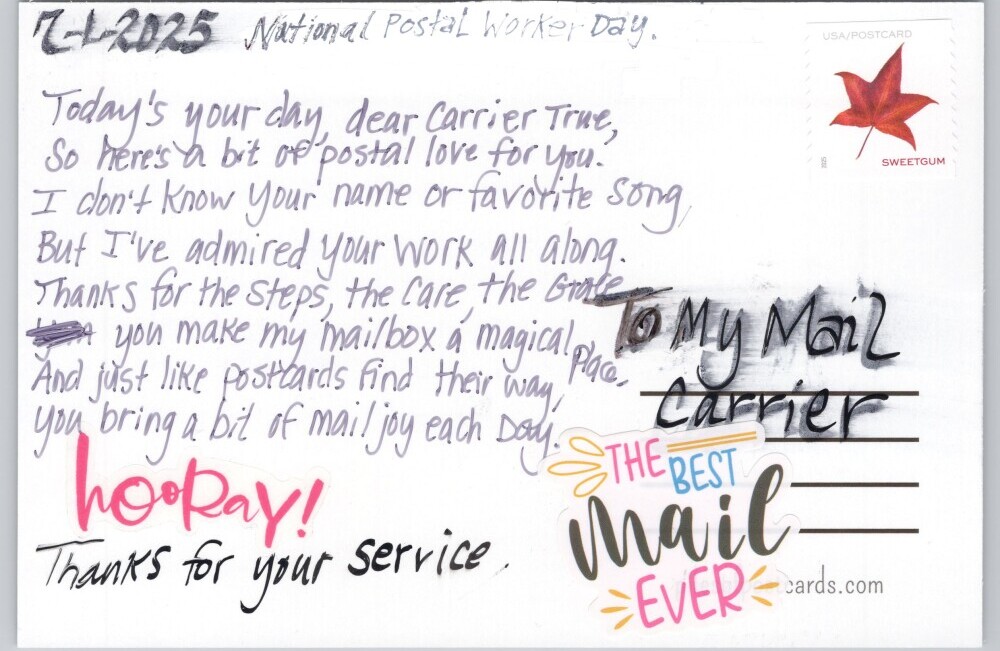 7-1-2025 National Postal Worker Day.
USA/POSTCARD
2025
SWEETGUM
Today's your day, dear Carrier True,
So here's a bit of postal love for you.
I don't know your name or favorite song
But I've admired your work all along.
Thanks for the steps, the care, the Grace
you make my mailbox a magical place.
And just like postcards find their way,
you bring a bit of mail joy each Day.
To My Mail
Carrier
hOORay!
Thanks for your service.
THE BEST
mail
EVER
cards.com